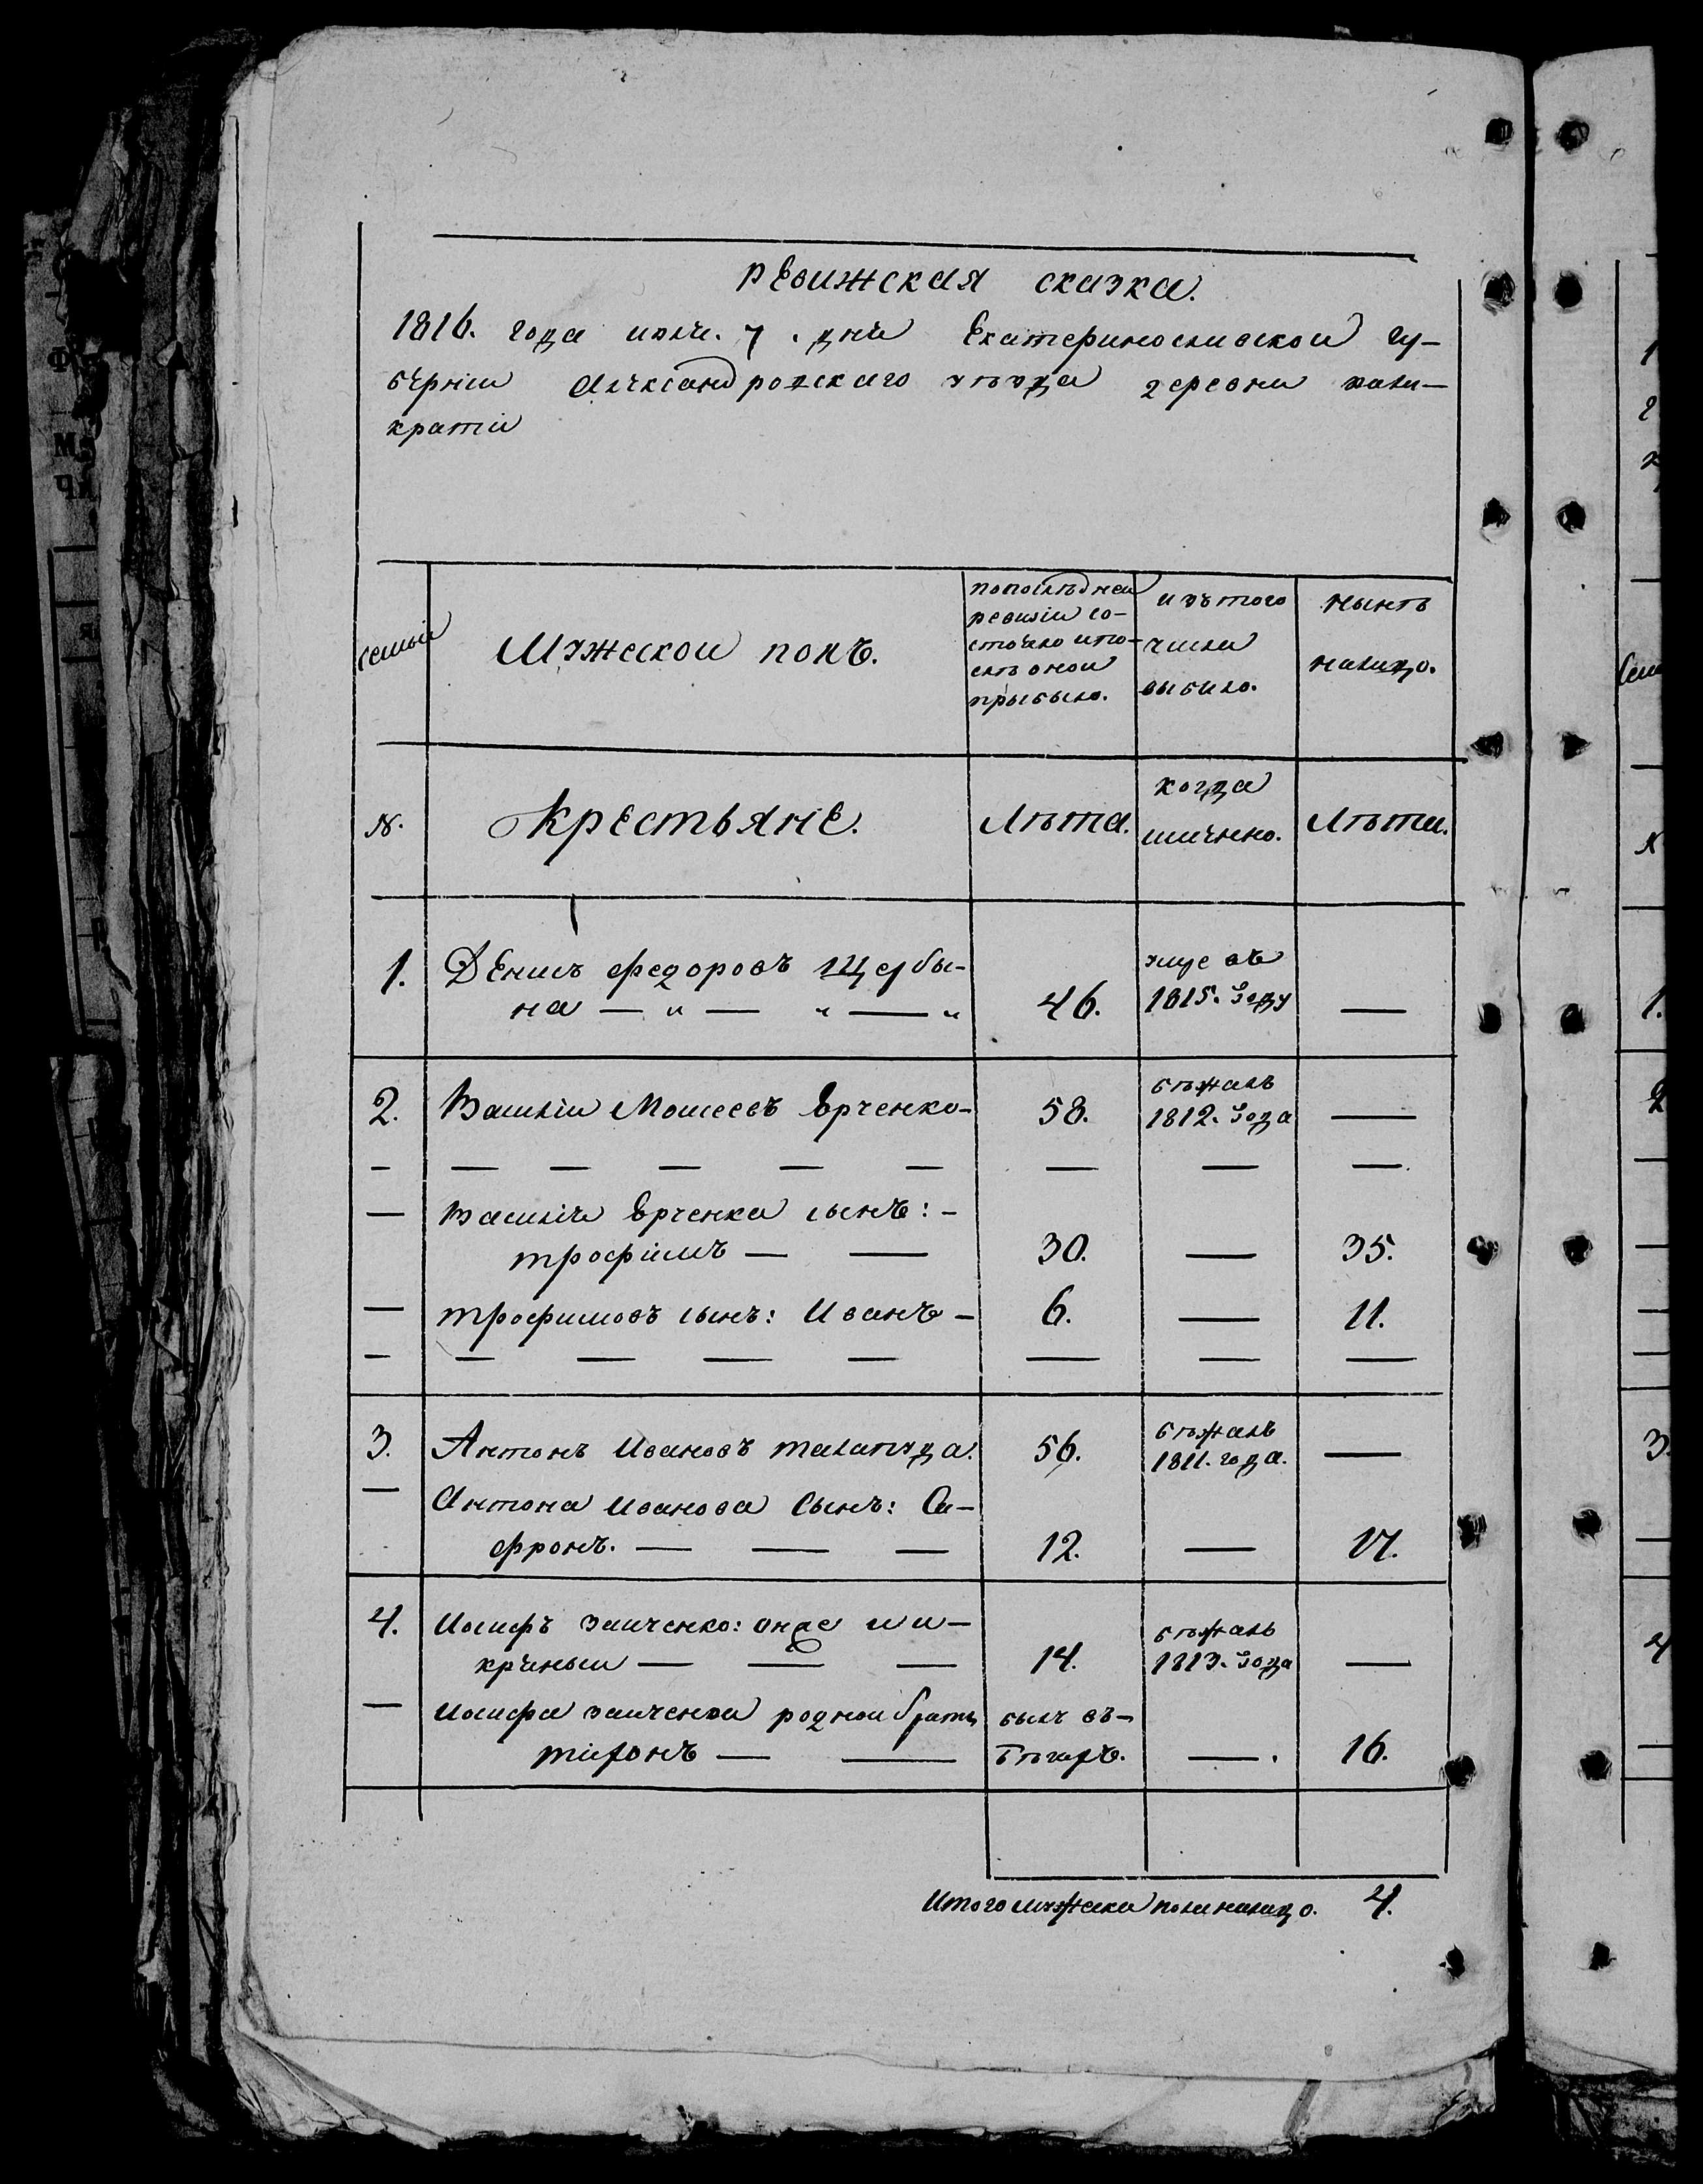 Ревижская сказка.
1816. года июля. 7. дня Екатеринославской гу-
берніи Александровскаго уезда деревни кали-
кратіи
семьи
Мужескои полъ.
попоследнеи
ревизіи со-
стояло ипо-
слѣ онои
прыбыло.
изъ того
числа
выбило.
нынѣ
налицо.
№.
Крестьяне.
Лѣта.
когда
имянно.
Лѣта.
1. Денисъ федоровъ Щербы-
на — " — " — " 46. умре въ 1815. Году —
2. Василіи Моисеевъ Юрченко- 58. бѣжалъ 1812. Года —
— Василія Юрченка сынъ: -
трофімъ — — 30. — 35.
— трофимовъ сынъ: Иванъ - 6. — 11.
3. Антонъ Ивановъ талапуда. 56. бѣжалъ 1811. года. —
— Антона Иванова Сынъ: Са-
фронъ. — — — 12. — 17.
4. Иосифъ заиченко: онже и
— — — 14. бѣжалъ 1813. Года —
— Иосифа заиченка роднои братъ былъ въ-
тихонъ — — бѣгахъ. —. 16.
Итого мужска пола налицо. 4.